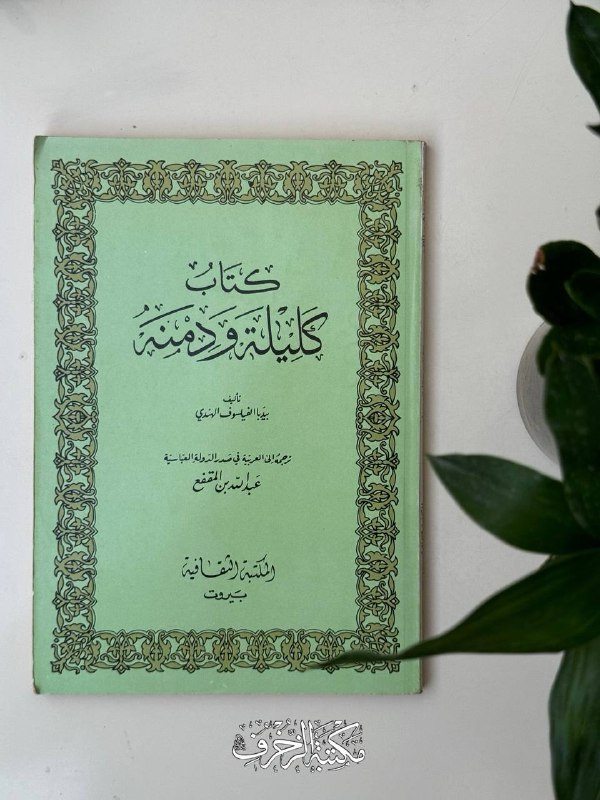 كتاب
كَلِيْلَة وَدِمْنَهُ
تأليف
بيدبا الفيلسوف الهندي
ترجمهُ الى العربية في صَدر الدولة العباسيّة
عَبدالله بن المقفع
المكتبة الثقافية
بيروت
مكتبة الزخرف